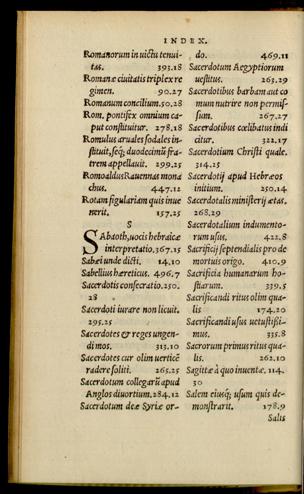 INDEX.
Romanorum in uictu tenui-
tas. 393.18
Romanæ ciuitatis triplex re
gimen. 90.27
Romanum concilium. 50.28
Rom. pontifex omnium ca-
put constituitur. 278.18
Romulus aruales sodales in-
stituit, seq; duodecimũ fra-
trem appellauit. 299.25
Romoaldus Rauennas mona
chus. 447.12
Rotam figulariam quis inue
nerit. 157.25
S
SAbaoth, uocis hebraicæ
interpretatio. 367.15
Sabæi unde dicti. 14.10
Sabellius hæreticus. 496.7
Sacerdotis consecratio. 250.
28
Sacerdoti iurare non licuit.
295.25
Sacerdotes & reges ungen-
di mos. 313.10
Sacerdotes cur olim uerticē
radere soliti. 265.25
Sacerdotum collegarũ apud
Anglos diuortium. 284.12
Sacerdotum deæ Syriæ or-
do. 469.11
Sacerdotum Aegyptiorum
uestitus. 263.29
Sacerdotibus barbam aut co
mum nutrire non permis-
sum. 267.27
Sacerdotibus cœlibatus indi
citur. 322.17
Sacerdotium Christi quale.
314.25
Sacerdotij apud Hebræos
initium. 250.14
Sacerdotalis ministerij ætas.
268.29
Sacerdotalium indumento-
rum usus. 422.8
Sacrificij septendialis pro de
mortuis origo. 410.9
Sacrificia humanarum ho-
stiarum. 339.5
Sacrificandi ritus olim qua-
lis 174.20
Sacrificandi usus uetustissi-
mus. 335.8
Sacrorum primus ritus qua-
lis. 262.10
Sagittæ à quo inuentæ. 114.
30
Salem eiusq; usum quis de-
monstrarit. 178.9
Salis